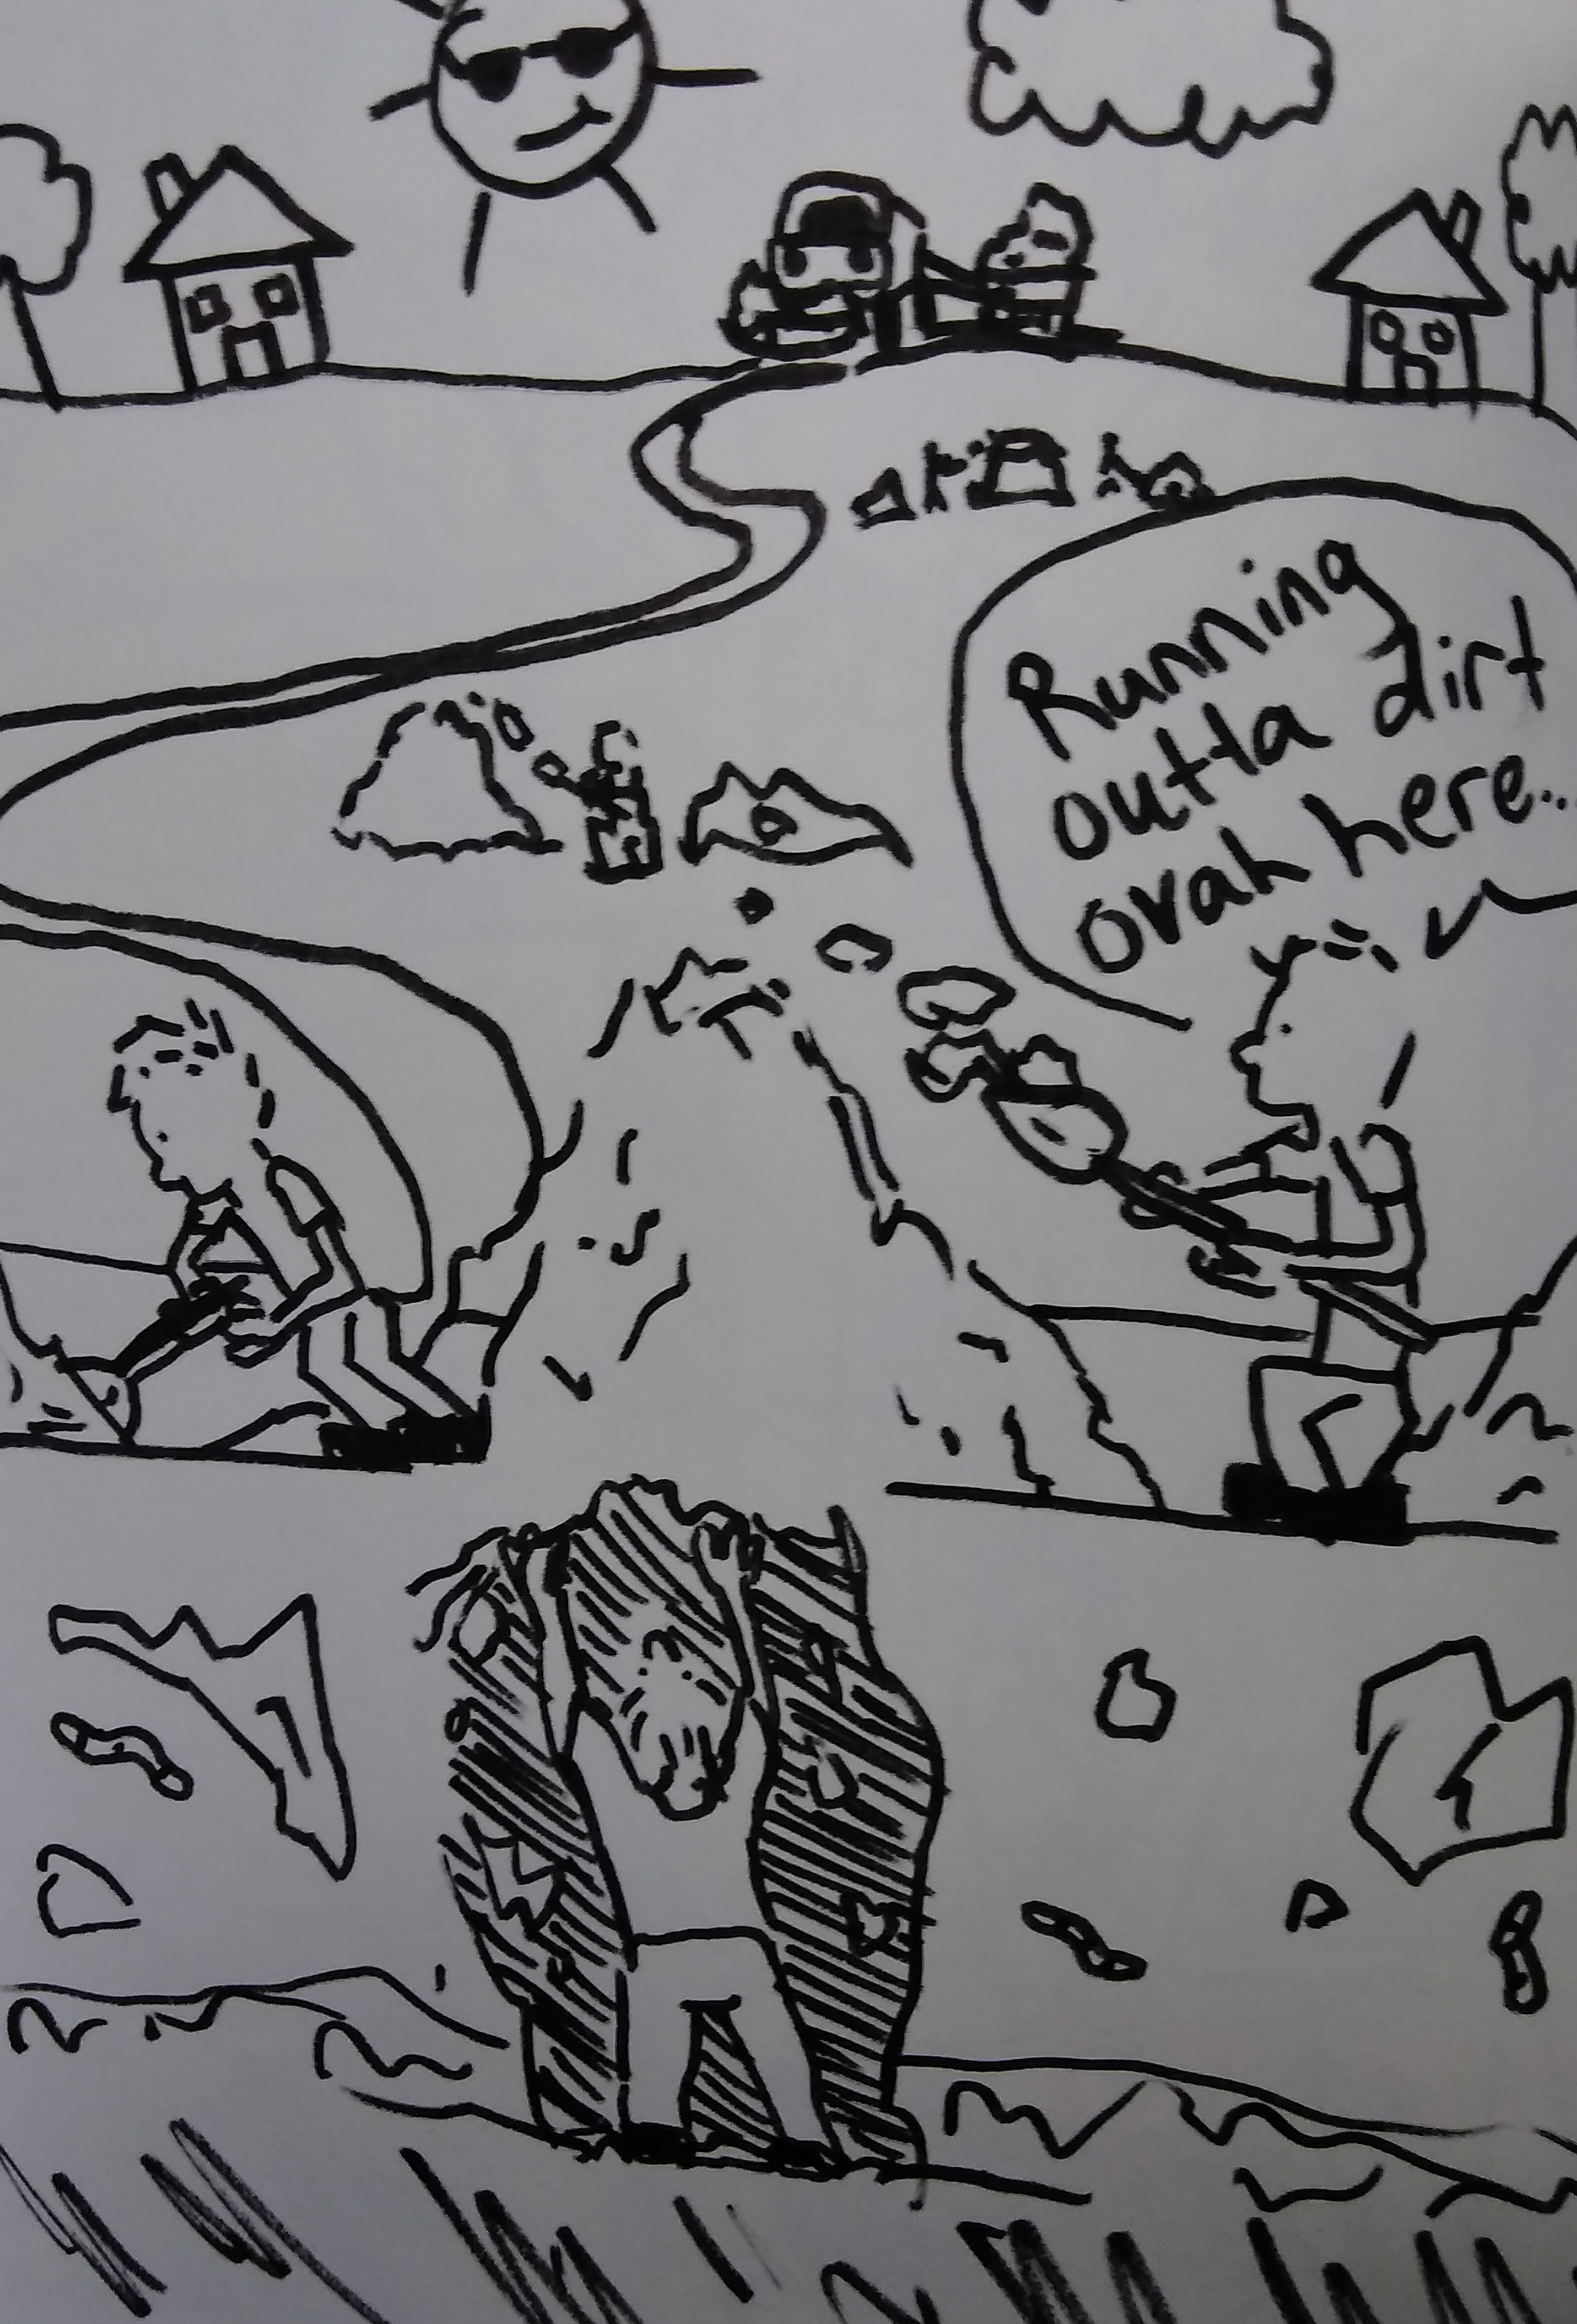 Running
outta dirt
ovah here...